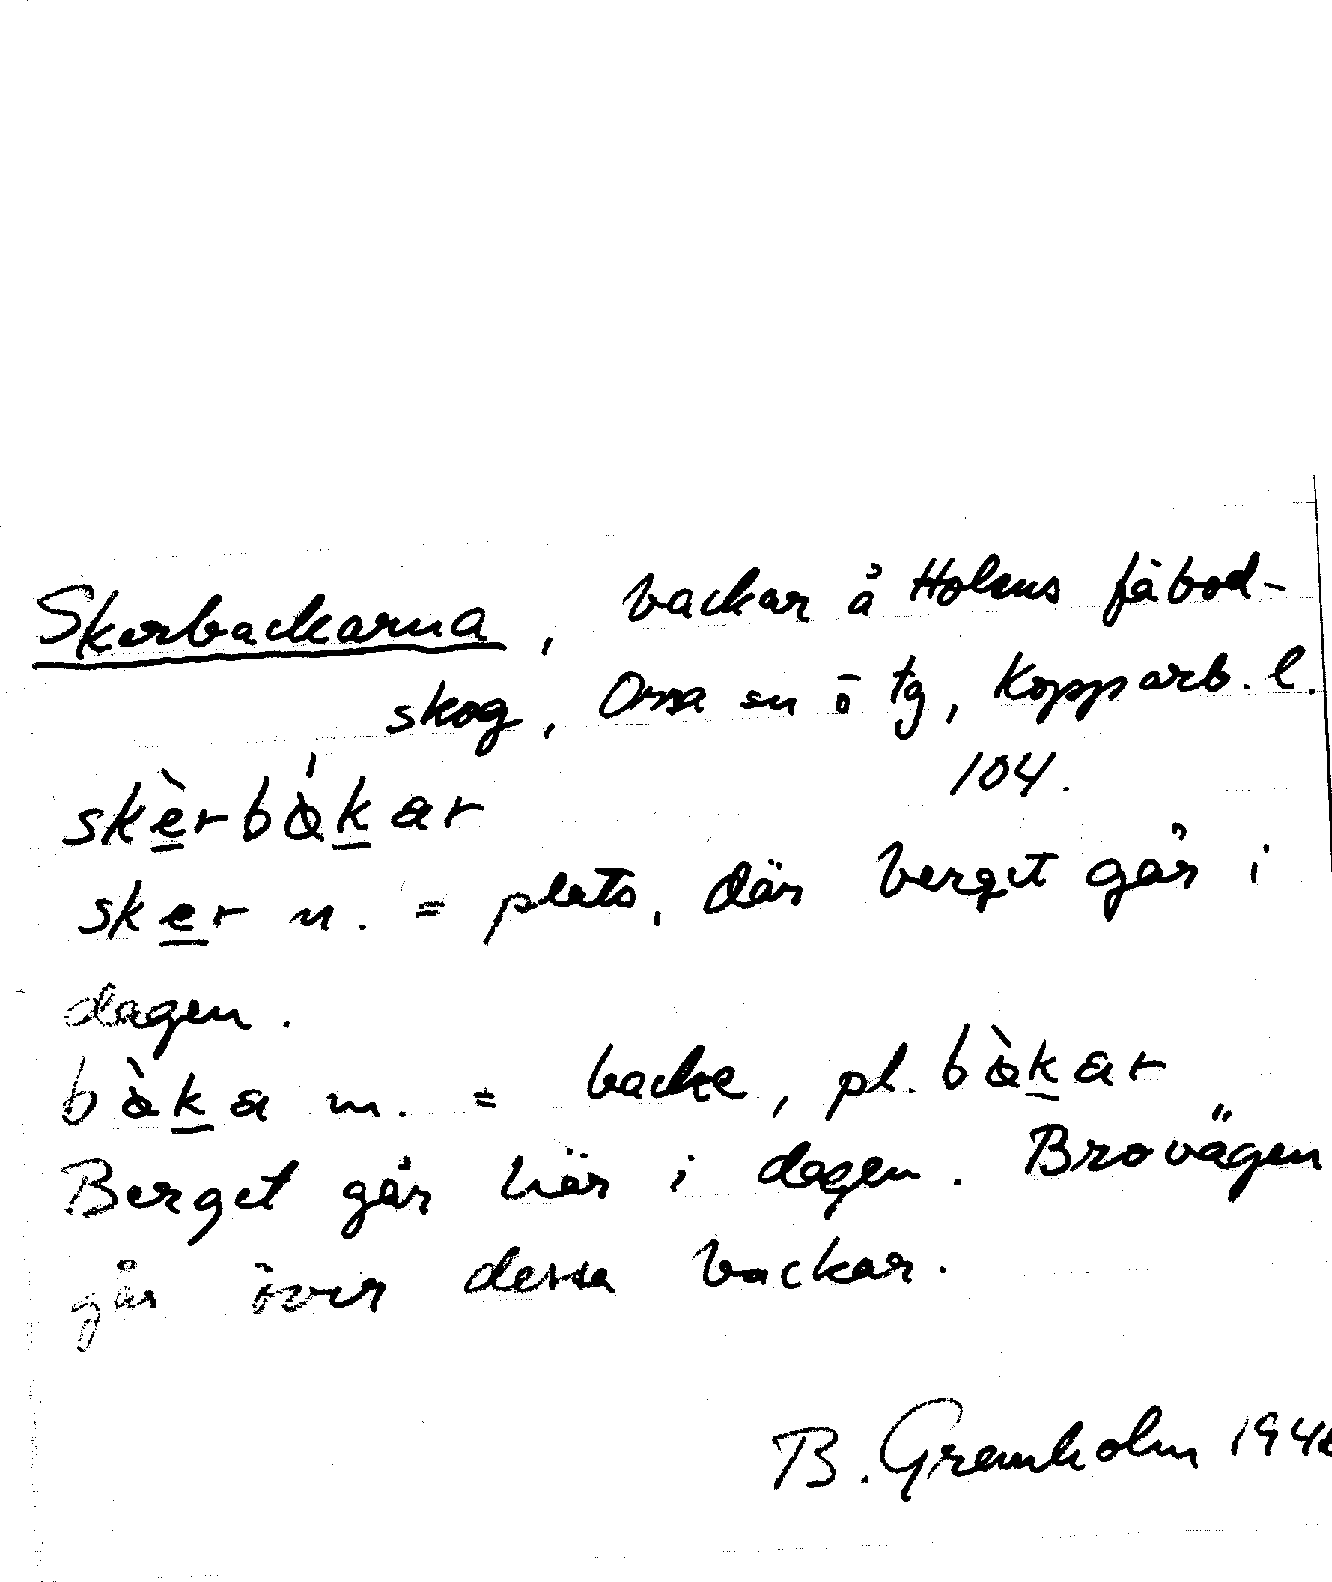 Skerbackarna, backar å Holens fäbod-
skog, Orsa sn ö tg, Kopparb. l.
104.
skèrbàkar
sker n. = plats, där berget går i
dagen.
bàka m. = backe, pl. bàkar
Berget går här i dagen. Brovägen
går över dessa backar.
B.